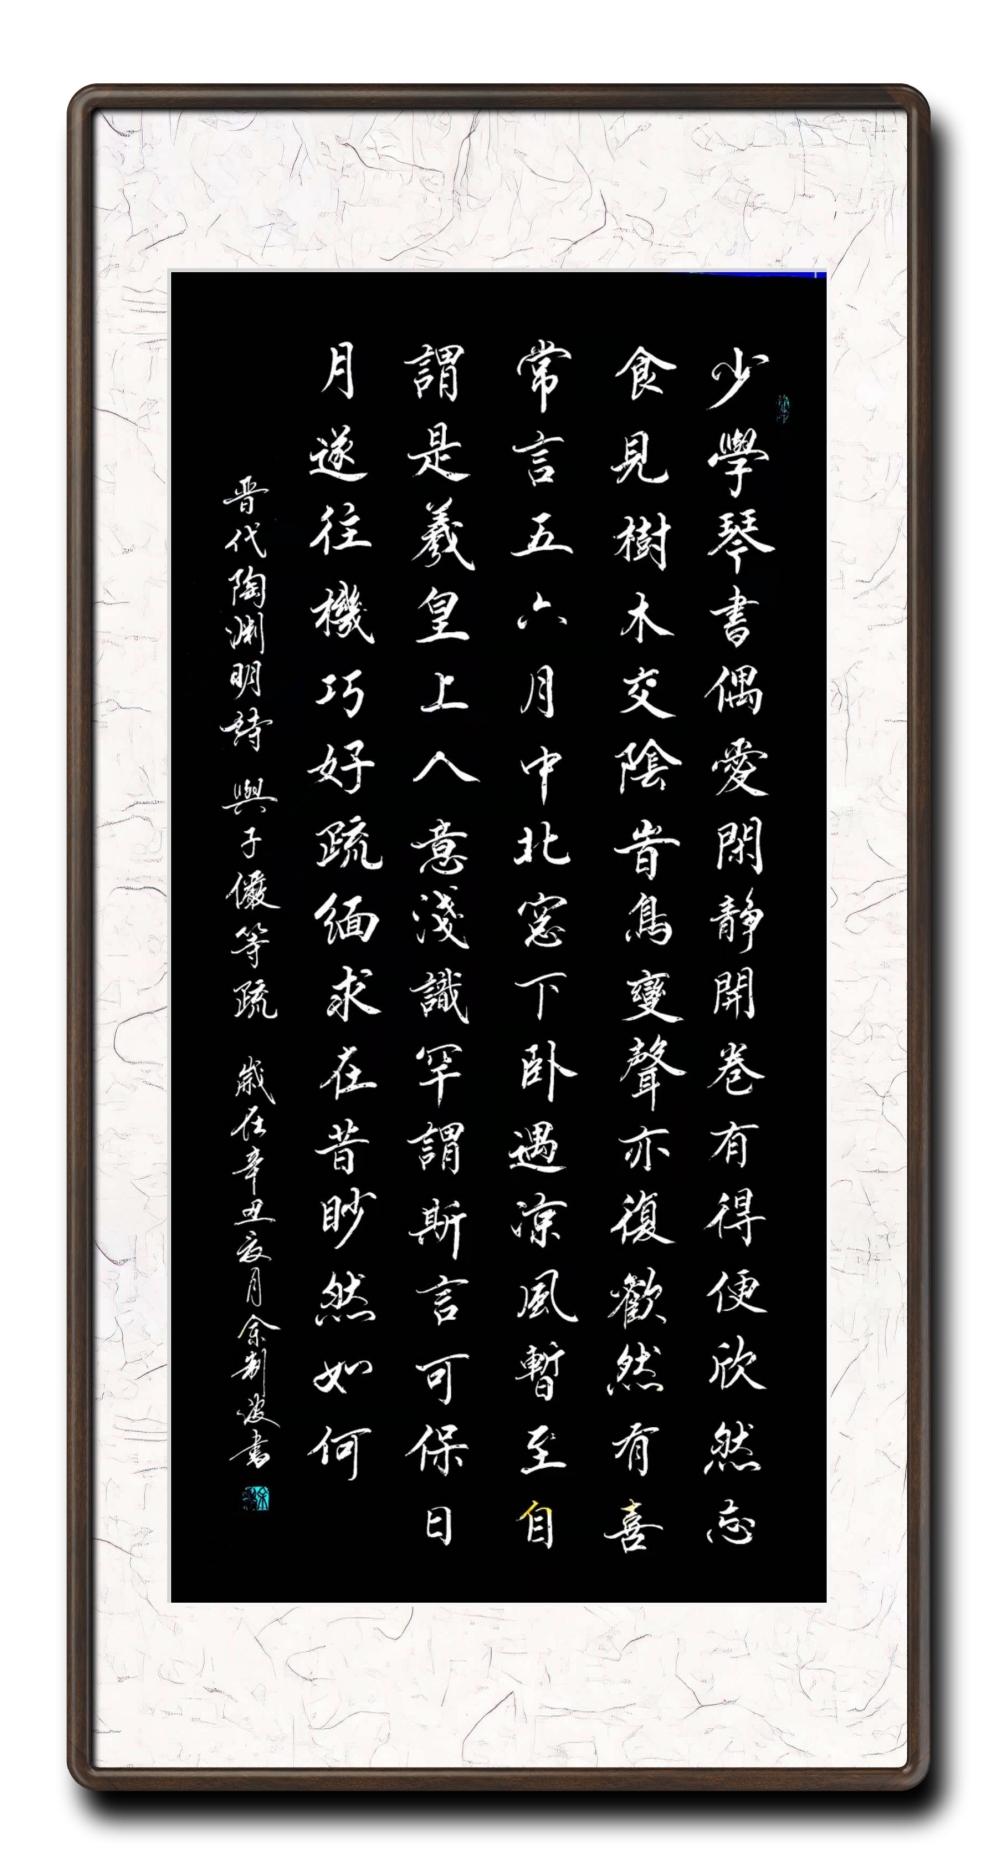 少學琴書偶愛閑靜開卷有得便欣然忘
食見樹木交陰旹鳥變聲亦復歡然有喜
常言五六月中北窓下卧遇涼風暫至自
謂是羲皇上人意淺識罕謂斯言可保日
月遂往機巧好疏緬求在昔眇然如何
晋代陶渊明詩 與子儼等疏 歲在辛丑亥月余制波書